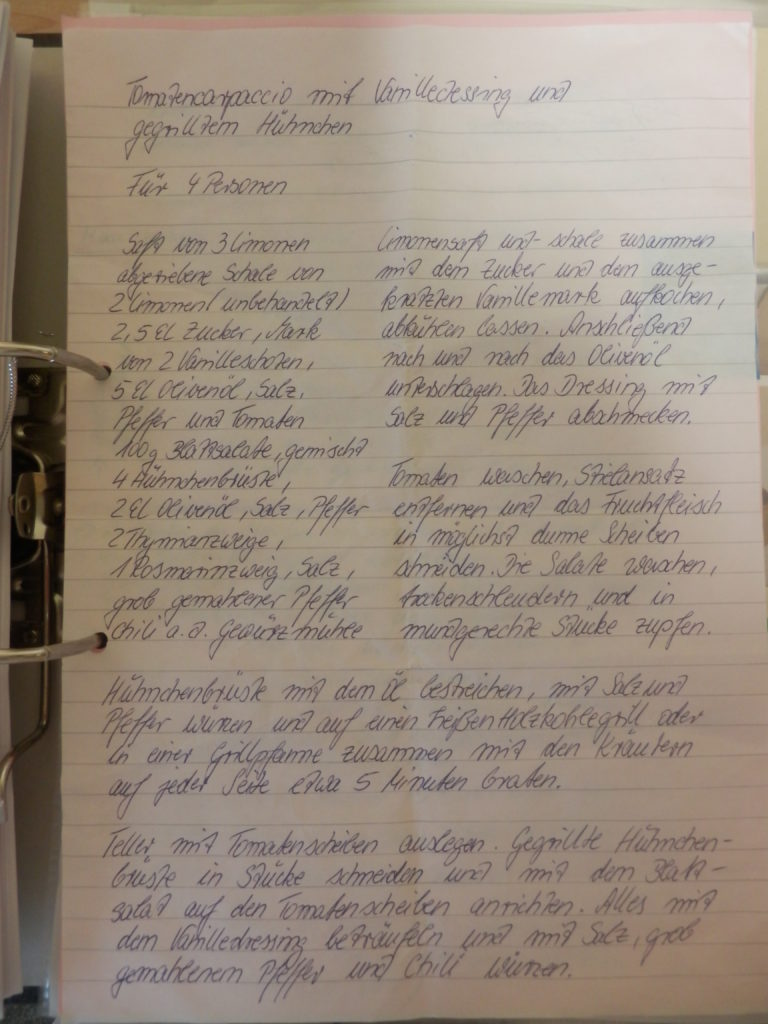 Tomatencarpaccio mit Vanilledessing und
gegrilltem Hühnchen
Für 4 Personen
Saft von 3 Limonen
abgeriebene Schale von
2 Limonen (unbehandelt)
2,5 El Zucker, Mark
von 2 Vanilleschoten,
5 El Olivenöl, Salz,
Pfeffer und Tomaten
100g Blattsalate, gemischt
4 Hühnchenbrüste,
2 El Olivenöl, Salz, Pfeffer
2 Thymianzweige,
1 Rosmarinzweig, Salz,
grob gemahlener Pfeffer
Chili a.d. Gewürzmühle
Limonensaft und -schale zusammen
mit dem Zucker und dem ausge-
kratzten Vanillemark aufkochen,
abkühlen lassen. Anschließend
nach und nach das Olivenöl
unterschlagen. Das Dressing mit
Salz und Pfeffer abschmecken.
Tomaten waschen, Stielansatz
entfernen und das Fruchtfleisch
in möglichst dünne Scheiben
schneiden. Die Salate waschen,
trockenschleudern und in
mundgerechte Stücke zupfen.
Hühnchenbrüste mit dem Öl bestreichen, mit Salz und
Pfeffer würzen und auf einen heißen Holzkohlegrill oder
in einer Grillpfanne zusammen mit den Kräutern
auf jeder Seite etwa 5 Minuten braten.
Teller mit Tomatenscheiben auslegen. Gegrillte Hühnchen-
brüste in Stücke schneiden und mit dem Blatt-
salat auf den Tomatenscheiben anrichten. Alles mit
dem Vanilledressing beträufeln und mit Salz, grob
gemahlenem Pfeffer und Chili würzen.